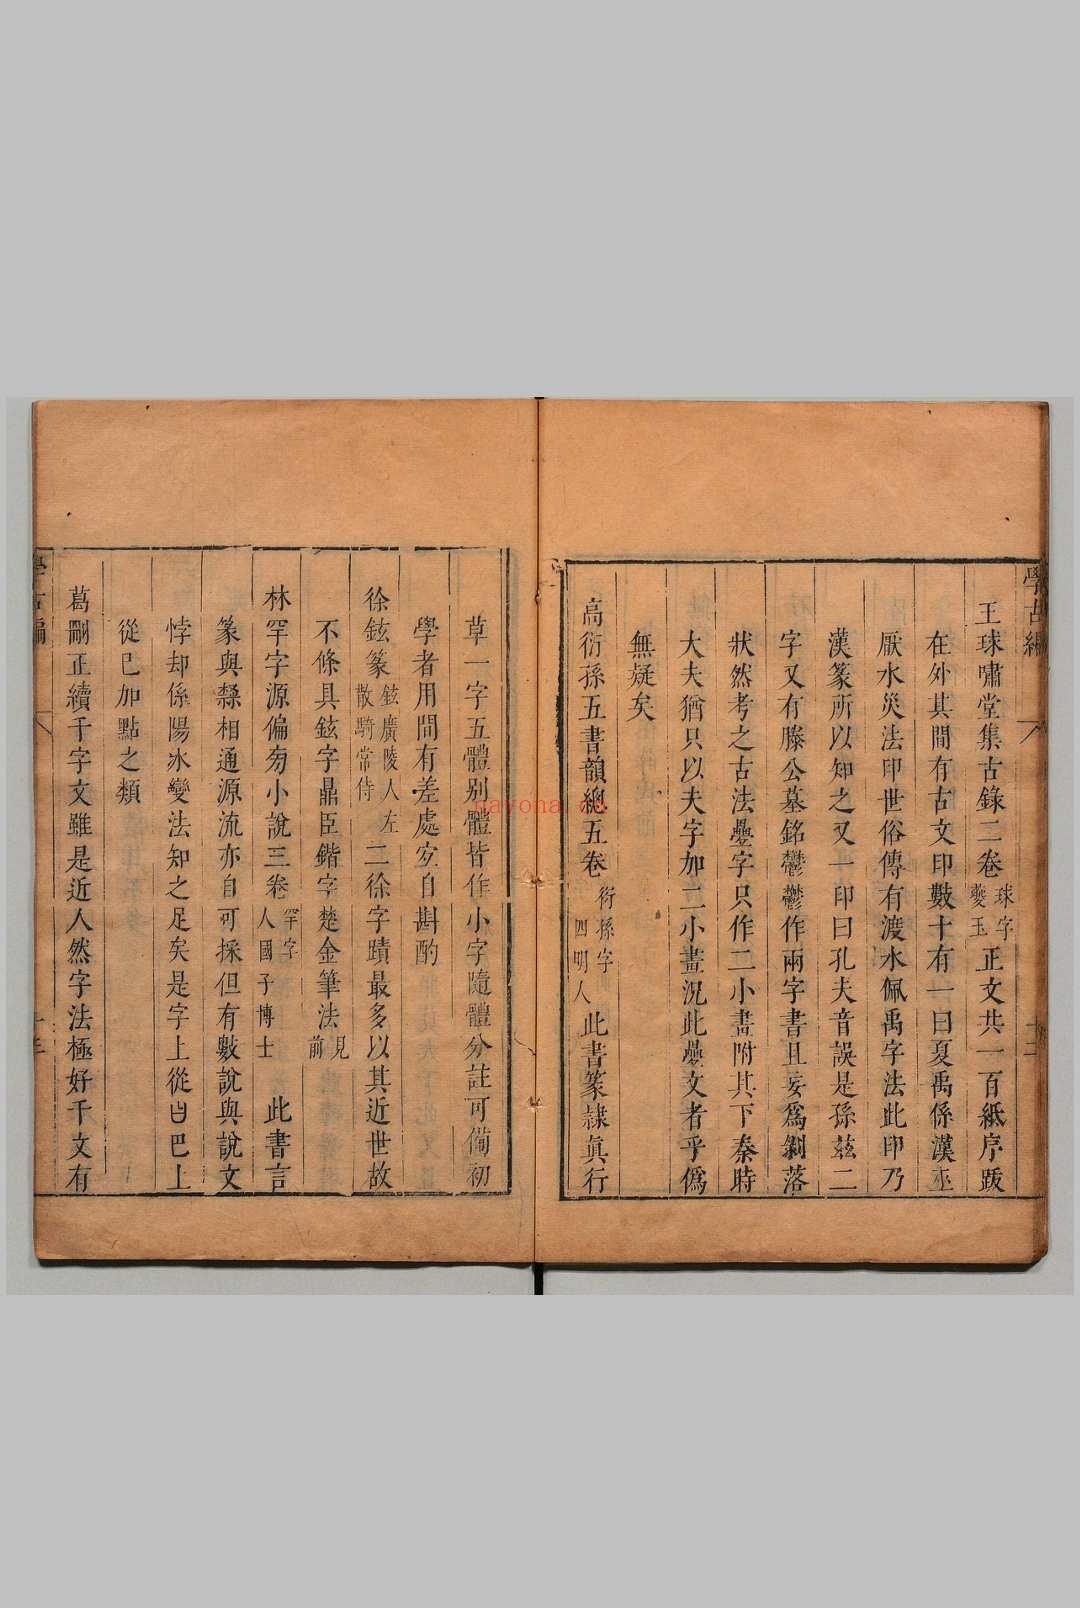 學古編
十二
王球嘯堂集古錄二卷球字夔玉正文共一百紙序跋
在外其間有古文印數十有一曰夏禹係漢巫
厭水災法印世俗傳有渡水佩禹字法此印乃
漢篆所以知之又一印曰孔夫音誤是孫茲二
字又有滕公墓銘鬱鬱作兩字書且妄爲剝落
狀然考之古法疊字只作二小畫附其下秦時
大夫猶只以夫字加二小畫況此疊文者乎僞
無疑矣
高衍孫五書韻總五卷衍孫字四明人此書篆隸眞行
草一字五體別體皆作小字隨體分註可備初
學者用間有差處宜自斟酌
徐鉉篆鉉廣陵人左散騎常侍二徐字蹟最多以其近世故
不條具鉉字鼎臣鍇字楚金筆法見前
林罕字源偏旁小說三卷罕字人國子博士此書言
篆與隸相通源流亦自可採但有數說與說文
悖却係陽氷變法知之足矣是字上從𦣹巴上
從巳加點之類
葛剛正續千字文雖是近人然字法極好千文有
學古編
十三
nayona.cn